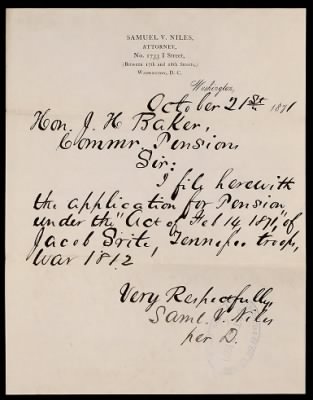 SAMUEL V. NILES,
ATTORNEY,
No. 1733 I Street,
(Between 17th and 18th Streets,)
WASHINGTON, D. C.
Washington,
October 21st 1871
Hon. J. H Baker,
Commr. Pensions
Sir:
I file herewith
the application for Pension
under the "Act of Feb 14, 1871," of
Jacob Brite, Tennessee troops,
War 1812
Very Respectfully,
Saml. V. Niles
per D.